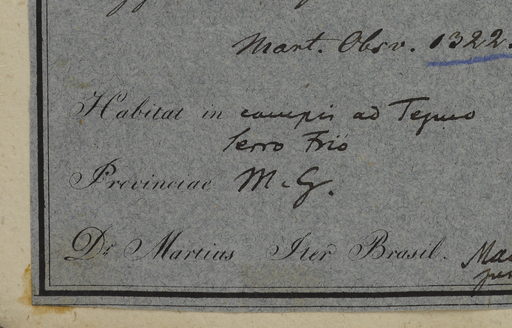 Mart. Obsv. 1322.
Habitat in campis ad Tejuco
Serro Frio
Provinciae M. G.
Dr. Martius Iter Brasil.